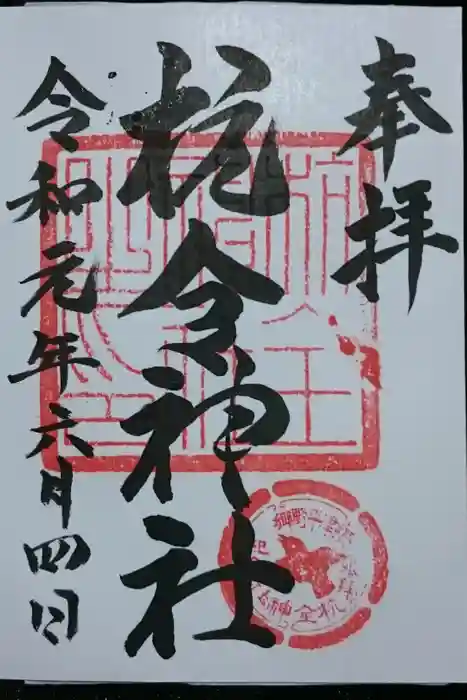 奉拝
杭全神社
令和元年六月四日